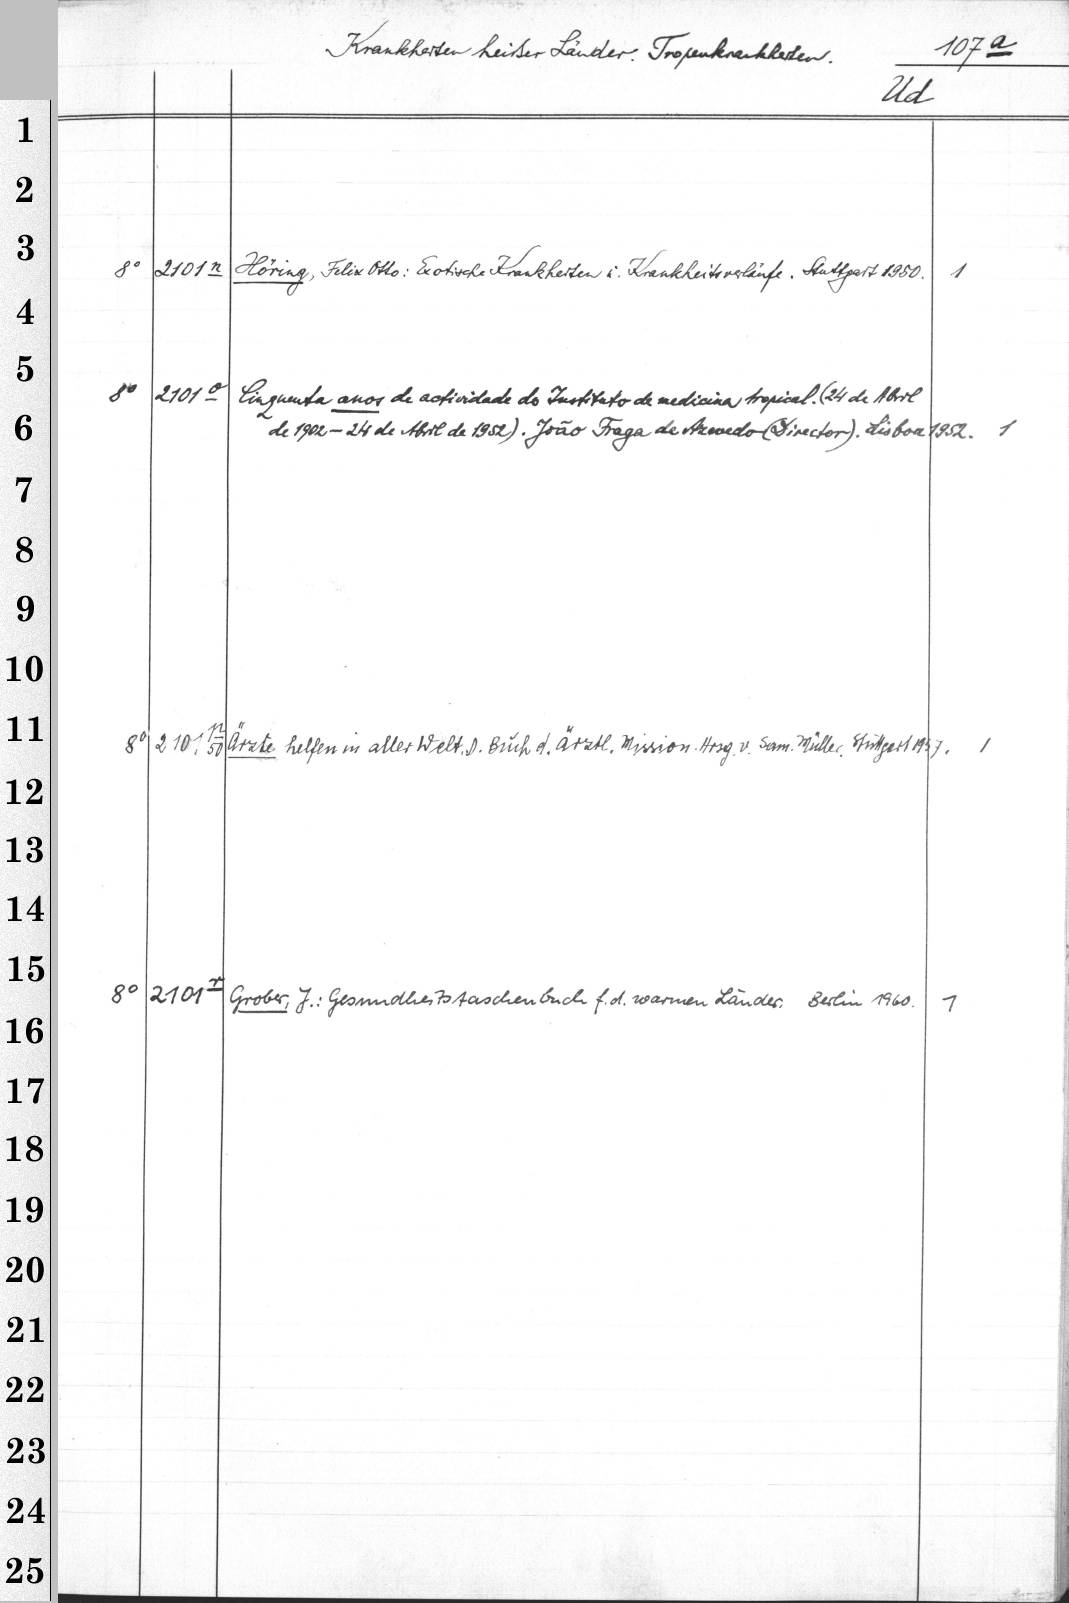 Krankheiten heißer Länder. Tropenkrankheiten.
107 a
Ud
1
2
3
8° 2101 n Höring, Felix Otto: Exotische Krankheiten u. Krankheitsverläufe. Stuttgart 1950. 1
4
5
8° 2101 o Cinquenta anos de actividade do Instituto de medicina tropical. (24 de Abril
6
de 1902 – 24 de Abril de 1952). João Fraga de Azevedo (Director). Lisboa 1952. 1
7
8
9
10
11
8° 2101 Ärzte helfen in aller Welt. D. Buch d. Ärztl. Mission. Hrsg. v. Sam. Müller. Stuttgart 1957. 1
12
13
14
15
8° 2101 r Grober, J.: Gesundheitstaschenbuch f. d. warmen Länder. Berlin 1960. 1
16
17
18
19
20
21
22
23
24
25